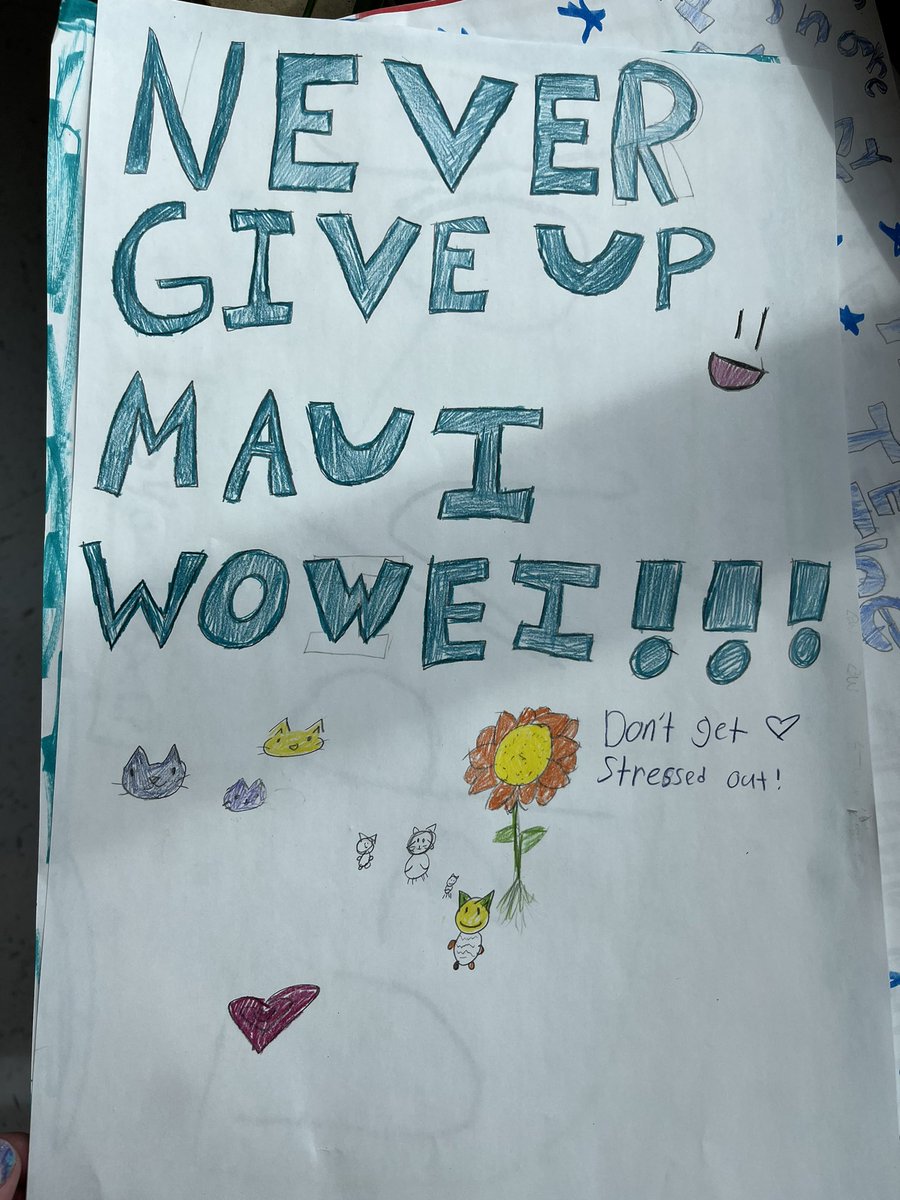 NEVER
GIVE UP
MAUI
WOWEI!!!
Don't get ♡
Stressed out!